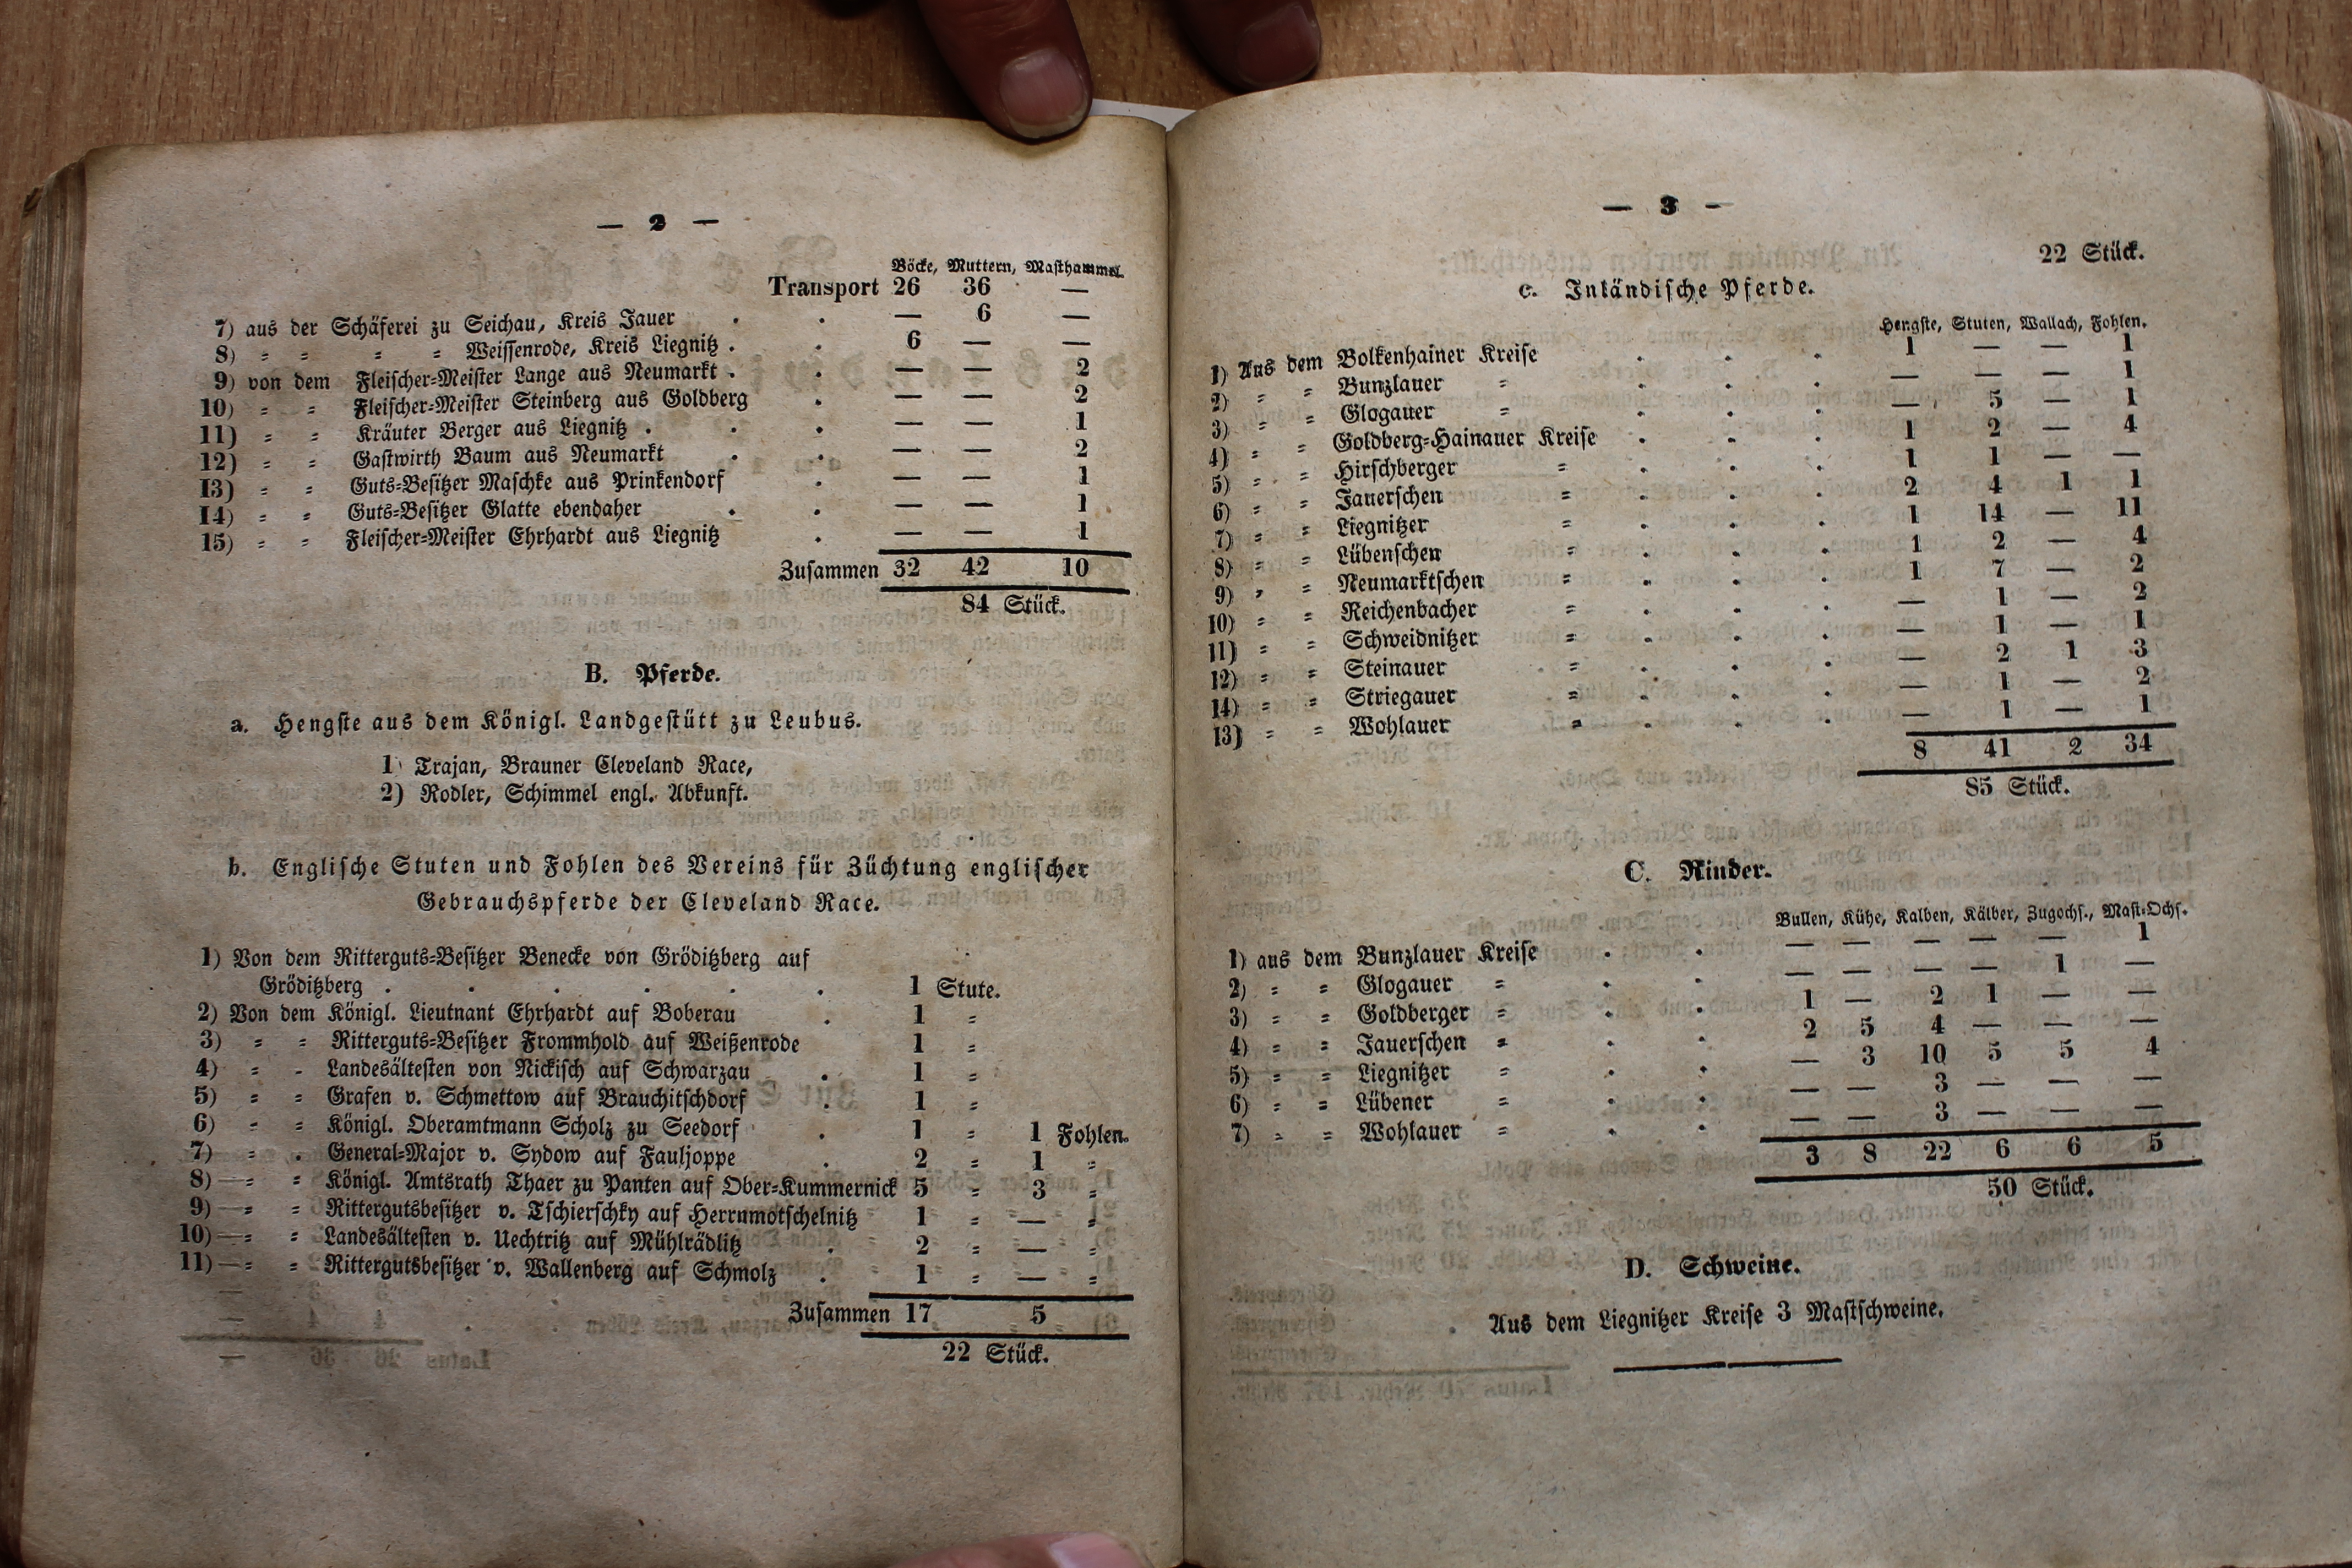 — 2 —
Böcke, Muttern, Masthammel.
Transport 26 36 —
7) aus der Schäferei zu Seichau, Kreis Jauer . . — 6 —
8) = = = = Weissenrode, Kreis Liegnitz . . 6 — —
9) von dem Fleischer=Meister Lange aus Neumarkt . . — — 2
10) = = Fleischer=Meister Steinberg aus Goldberg . — — 2
11) = = Kräuter Berger aus Liegnitz . . . — — 1
12) = = Gastwirth Baum aus Neumarkt . . — — 2
13) = = Guts=Besitzer Maschke aus Prinkendorf . — — 1
14) = = Guts=Besitzer Glatte ebendaher . . — — 1
15) = = Fleischer=Meister Ehrhardt aus Liegnitz . — — 1
Zusammen 32 42 10
84 Stück.
B. Pferde.
a. Hengste aus dem Königl. Landgestütt zu Leubus.
1) Trajan, Brauner Cleveland Race,
2) Rodler, Schimmel engl. Abkunft.
b. Englische Stuten und Fohlen des Vereins für Züchtung englischer
Gebrauchspferde der Cleveland Race.
1) Von dem Ritterguts=Besitzer Benecke von Gröditzberg auf
Gröditzberg . . . . . . 1 Stute.
2) Von dem Königl. Lieutnant Ehrhardt auf Boberau . 1 =
3) = = Ritterguts=Besitzer Frommhold auf Weißenrode 1 =
4) = - Landesältesten von Nickisch auf Schwarzau . 1 =
5) = = Grafen v. Schmettow auf Brauchitschdorf . 1 =
6) = = Königl. Oberamtmann Scholz zu Seedorf . 1 = 1 Fohlen.
7) = . General=Major v. Sydow auf Fauljoppe . 2 = 1 =
8) — = = Königl. Amtsrath Thaer zu Panten auf Ober=Kummernick 5 = 3 =
9) — = = Rittergutsbesitzer v. Tschierschky auf Herrnmotschelnitz 1 = — =
10) — = = Landesältesten v. Uechtritz auf Mühlrädlitz . 2 = — =
11) — = = Rittergutsbesitzer v. Wallenberg auf Schmolz . 1 = — =
Zusammen 17 5
22 Stück.
— 3 —
22 Stück.
c. Inländische Pferde.
Hengste, Stuten, Wallach, Fohlen.
1) Aus dem Bolkenhainer Kreise . . . 1 — — 1
2) = = Bunzlauer = . . . — — — 1
3) = = Glogauer = . . . — 5 — 1
4) = = Goldberg=Hainauer Kreise . . . 1 2 — 4
5) = = Hirschberger = . . . 1 1 — —
6) = = Jauerschen = . . . 2 4 1 1
7) = = Liegnitzer = . . . 1 14 — 11
8) = = Lübenschen = . . . 1 2 — 4
9) = = Neumarktschen = . . . 1 7 — 2
10) = = Reichenbacher = . . . — 1 — 2
11) = = Schweidnitzer = . . . — 1 — 1
12) = = Steinauer = . . . — 2 1 3
14) = = Striegauer = . . . — 1 — 2
13) = = Wohlauer = . . . — 1 — 1
8 41 2 34
85 Stück.
C. Rinder.
Bullen, Kühe, Kalben, Kälber, Zugochs., Mast=Ochs.
1) aus dem Bunzlauer Kreise . . — — — — — 1
2) = = Glogauer = . . — — — — 1 —
3) = = Goldberger = . . 1 — 2 1 — —
4) = = Jauerschen = . . 2 5 4 — — —
5) = = Liegnitzer = . . — 3 10 5 5 4
6) = = Lübener = . . — — 3 — — —
7) = = Wohlauer = . . — — 3 — — —
3 8 22 6 6 5
50 Stück.
D. Schweine.
Aus dem Liegnitzer Kreise 3 Mastschweine.